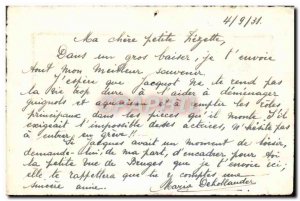 4/9/31.
Ma chère petite Zizette,
Dans un gros baiser, je t'envoie
tout mon meilleur souvenir.
J'espère que Jacquot ne te rend pas
la vie trop dure à l'aider à déménager
guignols et aquarium et à remplir les rôles
principaux dans les pièces qu'il monte. S'il
exigeait l'impossible de ses actrices, n'hésite pas
à entrer en grève!!
Si Jacques avait un moment de loisir,
demande-lui, de ma part, d'encadrer pour toi
la petite vue de Bruges que je t'envoie ici,
elle te rappellera que tu y comptes une
amie.
Maria Dehollander